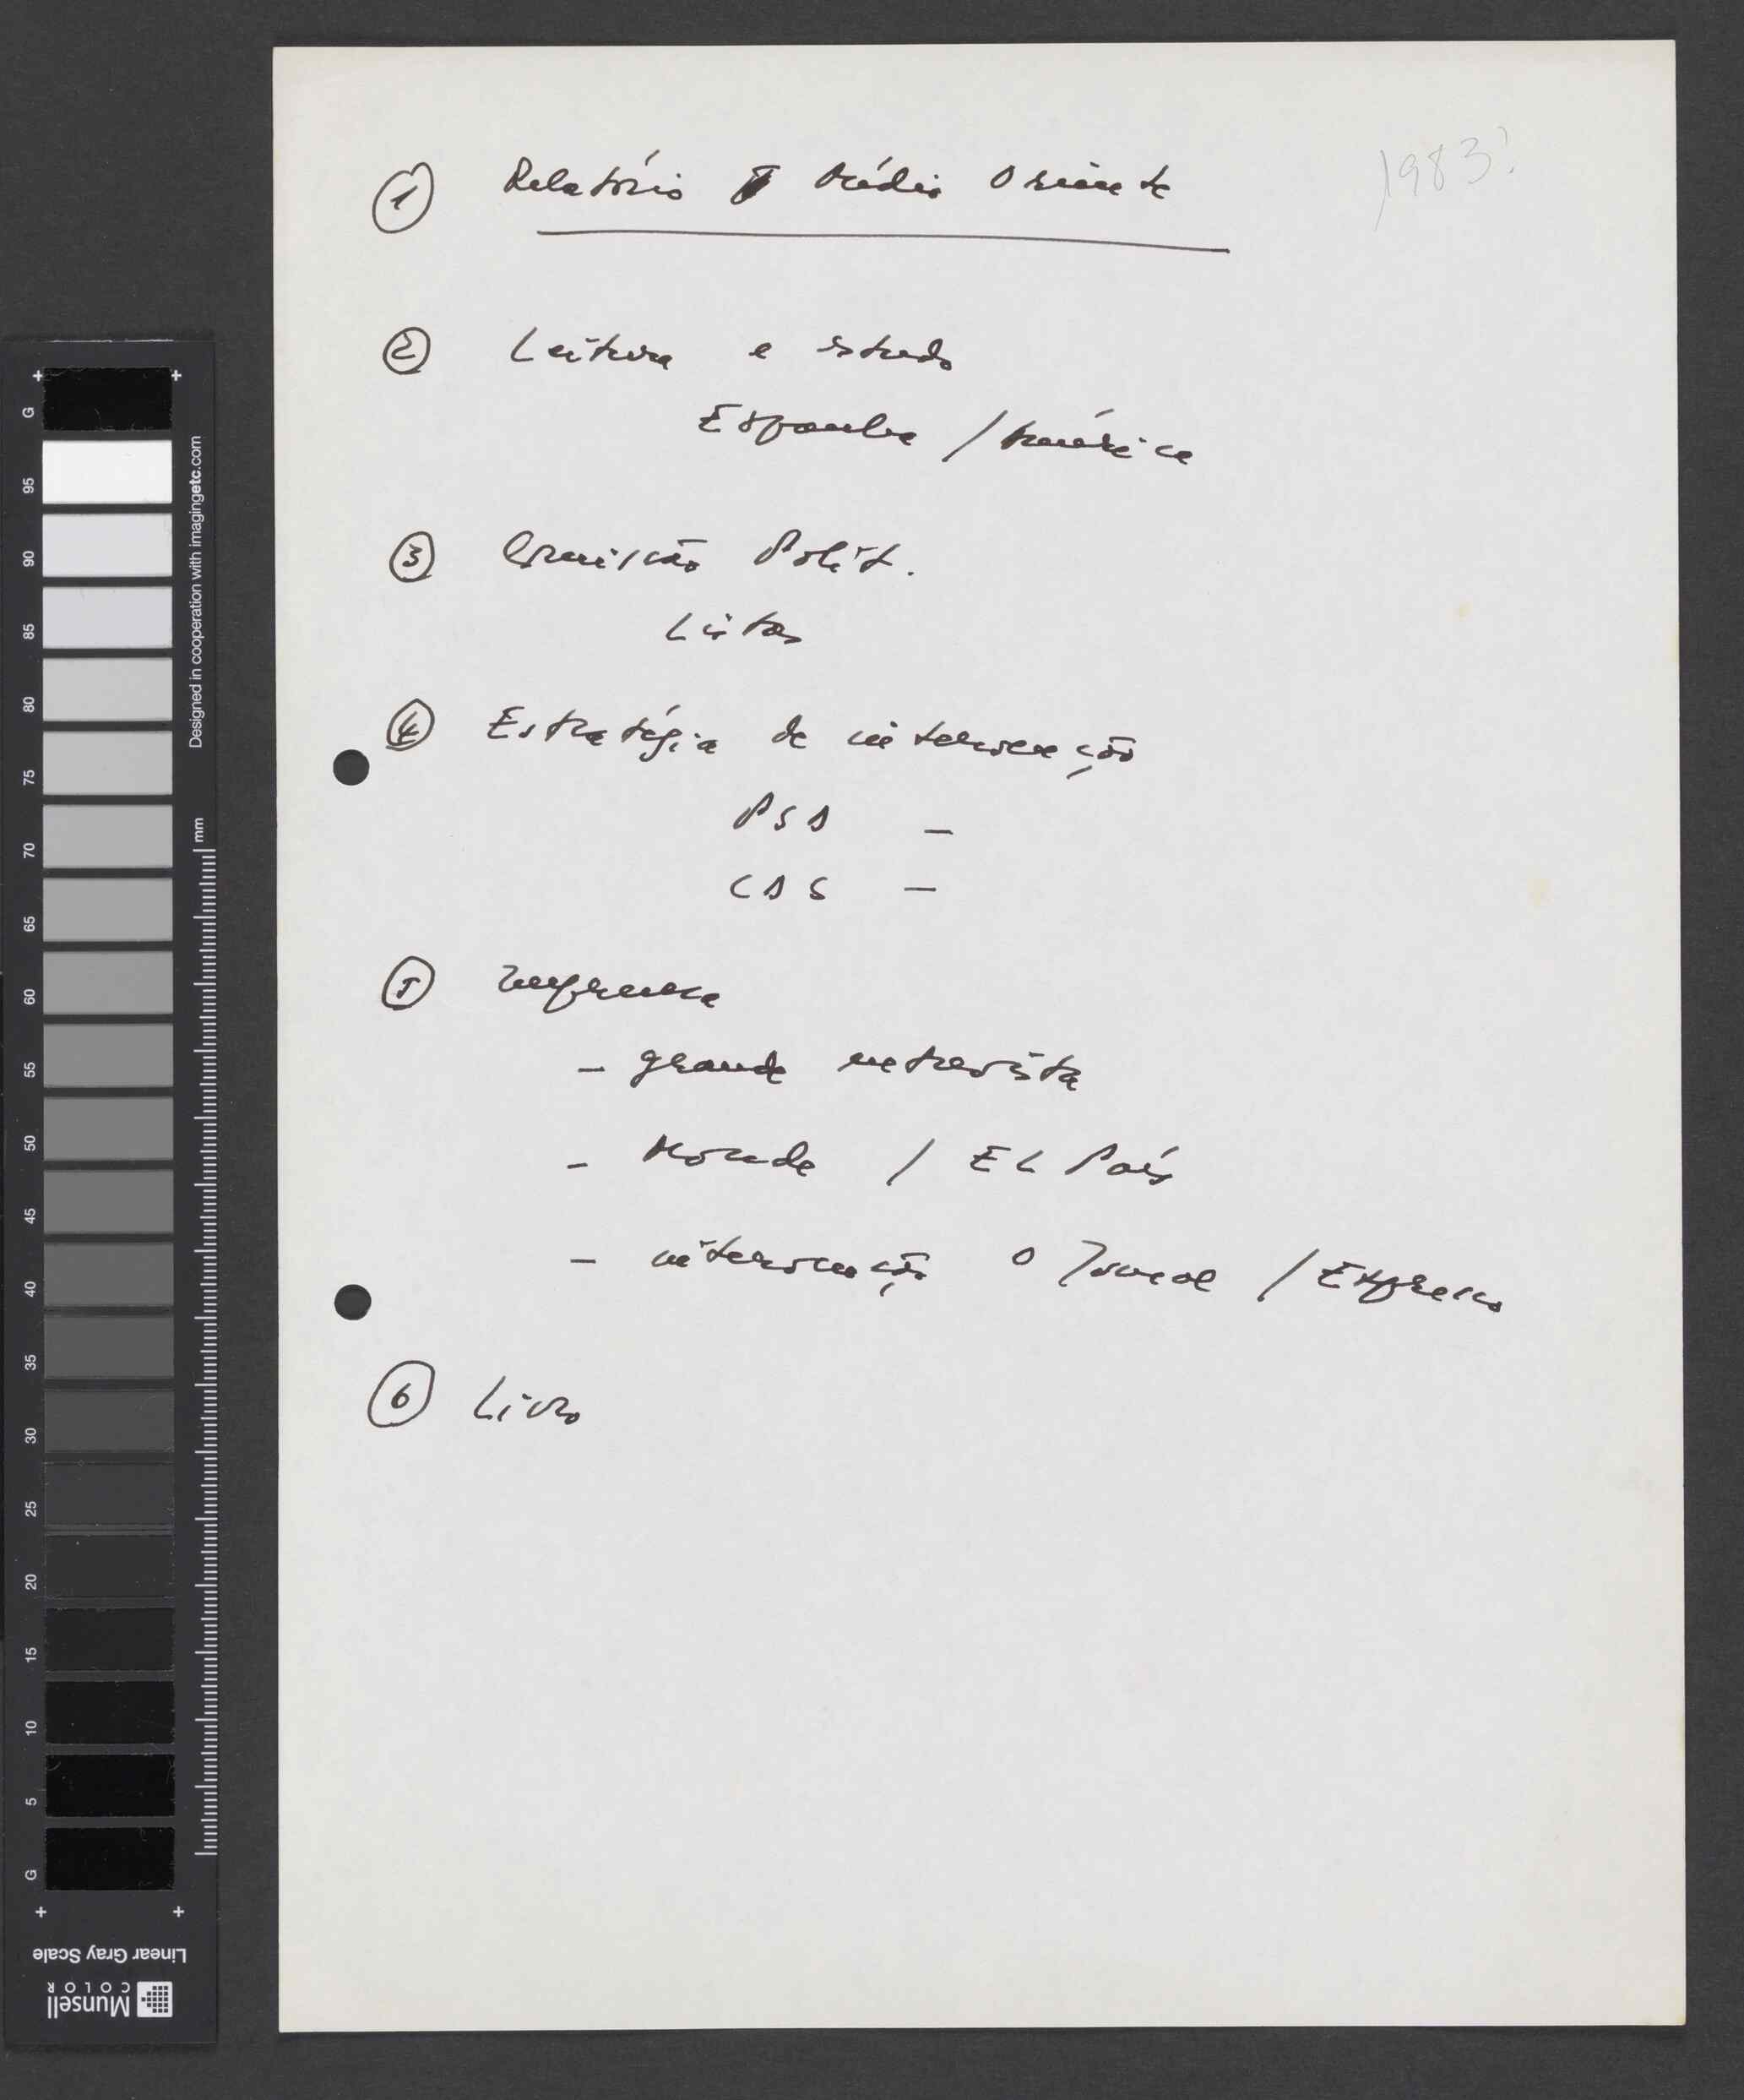 1983?
① Relatório Médio Oriente
② Leitura e estudo
Espanha / América
③ Comissão Polít.
Listas
④ Estratégia de intervenção
PSD —
CDS —
⑤ Imprensa
– grande entrevista
– Monde / EL País
– intervenção O Jornal / Expresso
⑥ Livro
G
95
90
85
80
75
70
65
60
55
50
45
40
35
30
25
20
15
10
5
G
Designed in cooperation with imagingetc.com
mm
Linear Gray Scale
Munsell
COLOR